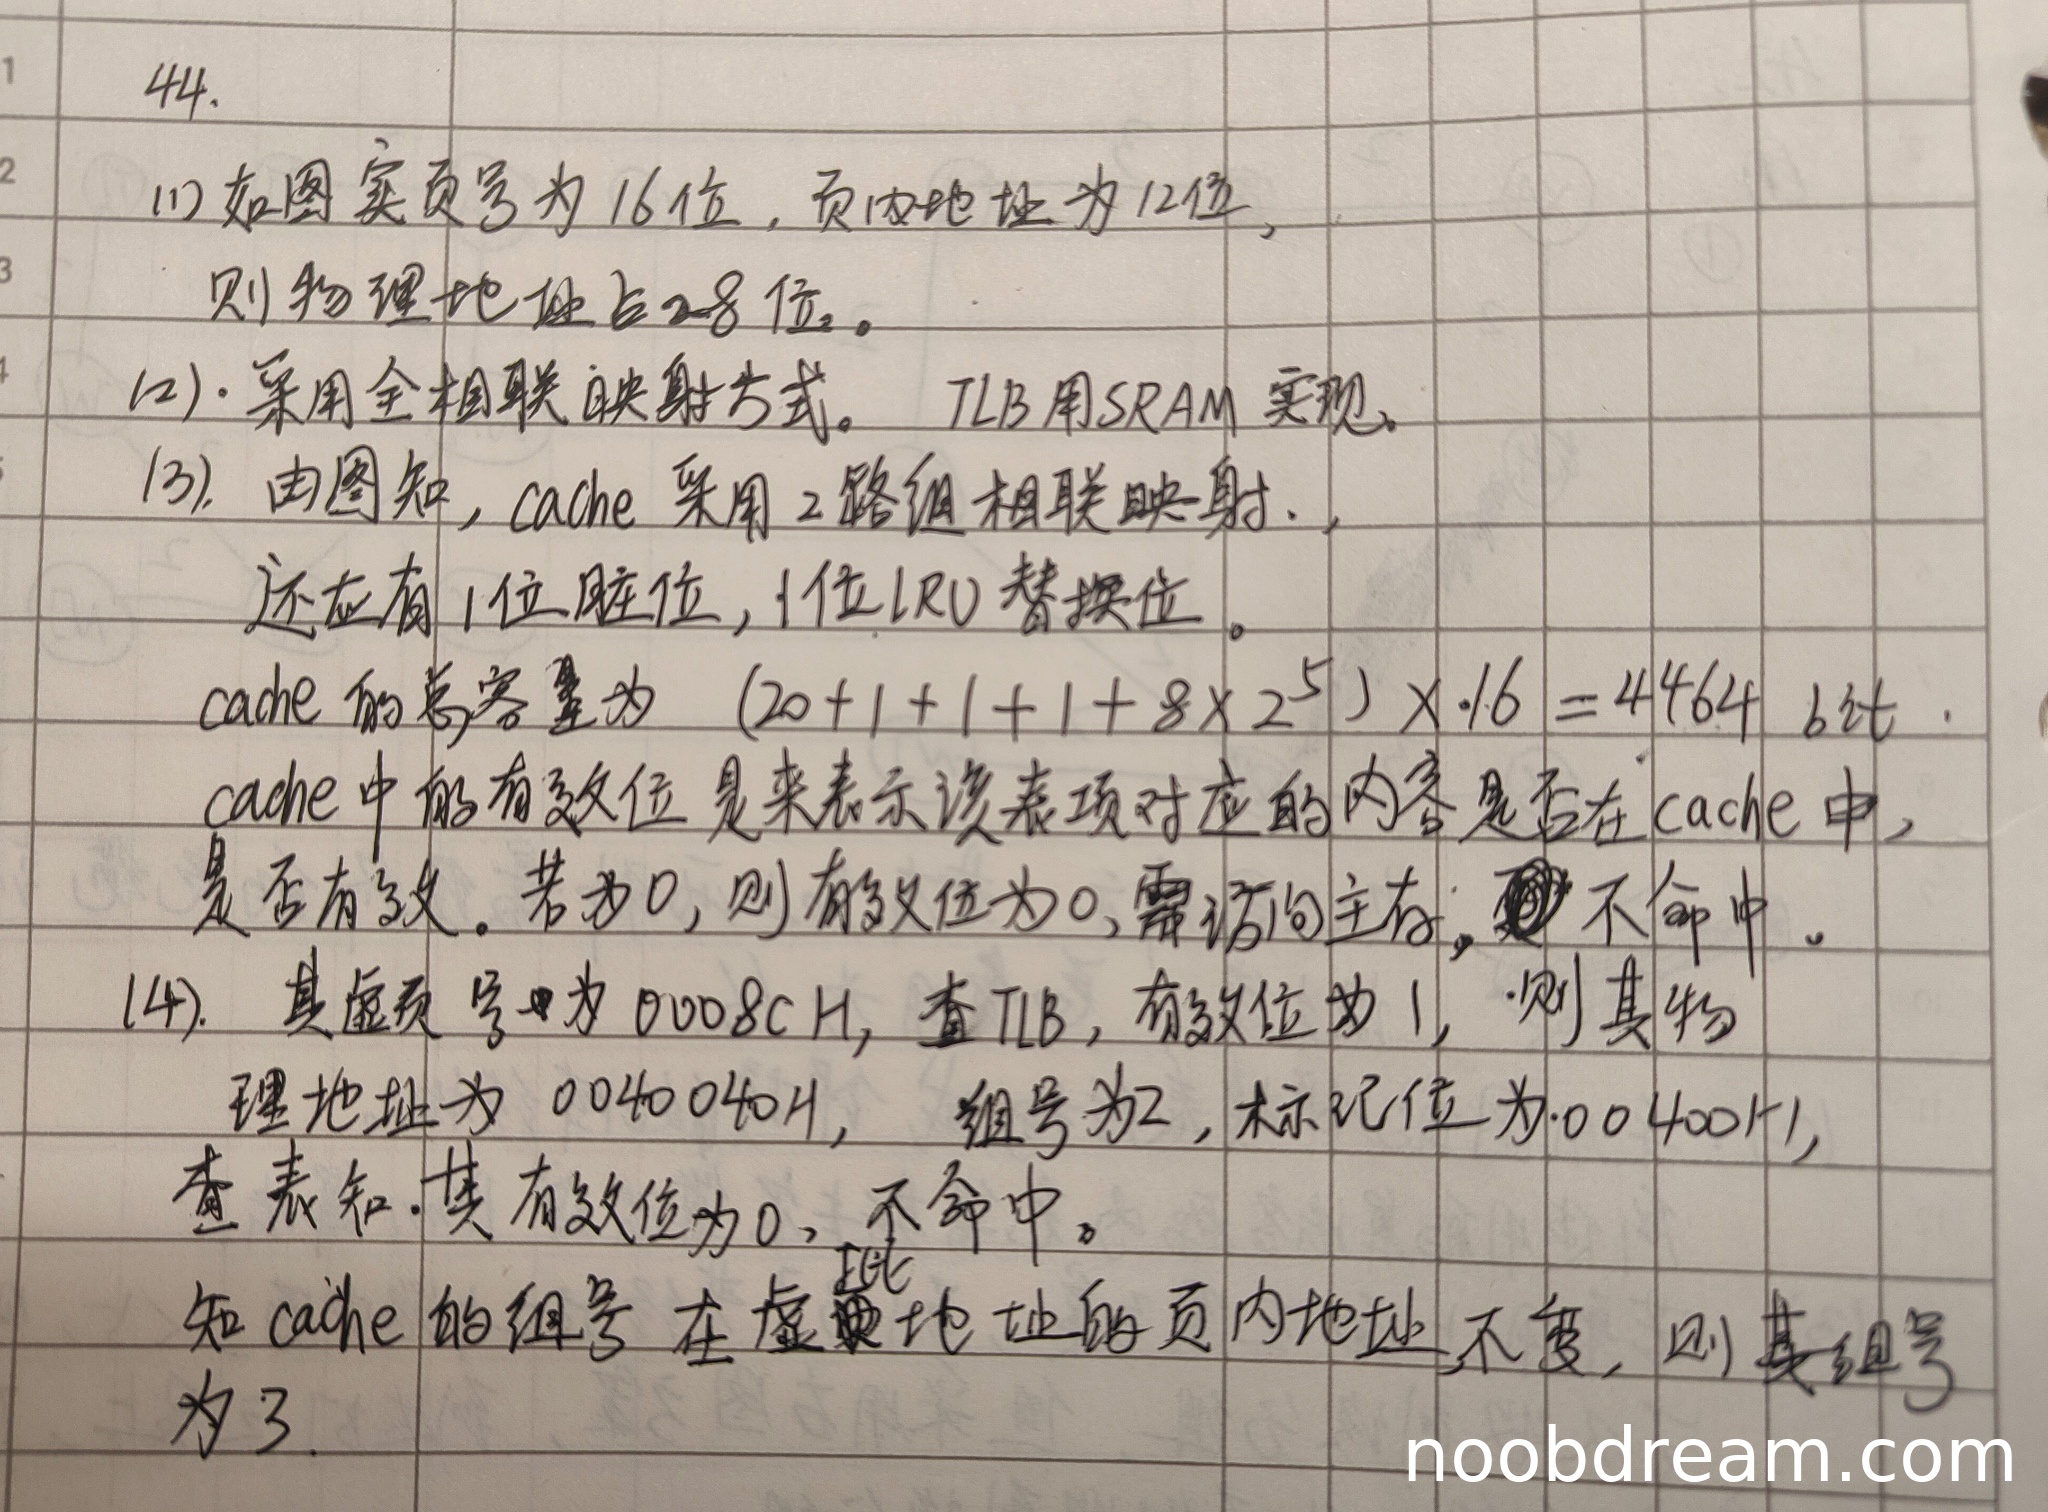 44.
(1) 如图实页号为16位，页内地址为12位，
则物理地址占28位。
(2). 采用全相联映射方式。 TLB用SRAM实现。
(3). 由图知，cache采用2路组相联映射.，
还应有1位脏位，1位LRU替换位。
cache的总容量为 (20+1+1+1+8×2⁵)×16=4464 bit.
cache中的有效位是来表示该表项对应的内容是否在cache中，
是否有效。若为0，则有效位为0，需访问主存，不命中。
(4). 其虚页号为0008CH，查TLB，有效位为1，则其物
理地址为0040040H， 组号为2，标记位为00400H，
查表知.其有效位为0、不命中。
知cache的组号在虚拟地址的页内地址，不变，则其组号
为3.
noobdream.com